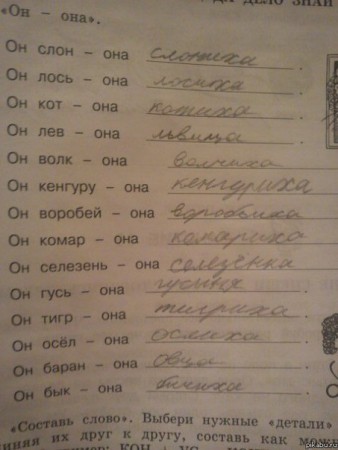 ДЕЛО ЗНАЙ
«Он – она».
Он слон – она слониха.
Он лось – она лосиха.
Он кот – она котиха.
Он лев – она львица.
Он волк – она волчиха.
Он кенгуру – она кенгуриха.
Он воробей – она
Он комар – она комариха.
Он селезень – она селезенка.
Он гусь – она гусыня.
Он тигр – она тигриха.
Он осёл – она ослиха.
Он баран – она овца.
Он бык – она бычиха.
«Составь слово». Выбери нужные «детали» и
их друг к другу, составь как можно
КОН +
pikabu.ru